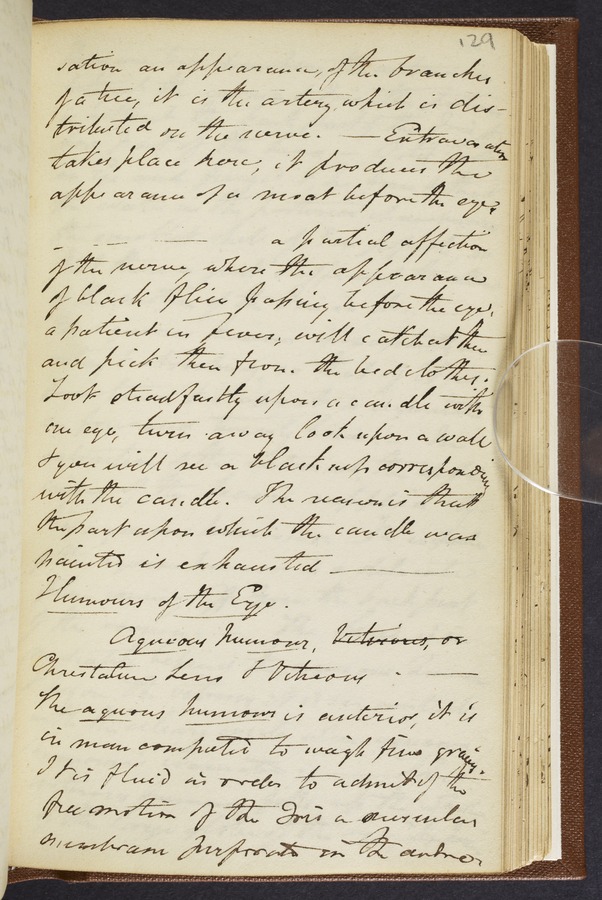 129
sation an appearance, of the branches
of a tree, it is the artery which is dis-
tributed on the nerve. — Extravasation
takes place here, it produces the
appearance of a moat before the eyes
_ _ — a partial affection
of the nerve, where the appearance
of black flies passing before the eye.
a patient in fever, will catch at them
and pick them from the bedclothes.
Look steadfastly upon a candle with
one eye, turn away look upon a wall
& you will see a black corresponding
with the candle. The reason is that
the part upon which the candle was
painted is exhausted —
Humours of the Eye.
Aqueous humour, Vitreous, or
Christaline Lens & Vitreous - —
The aquous humour is anterior, it is
in man computed to weigh five grains.
It is fluid in order to admit of the
free motion of the Iris a muscular
membrane in the